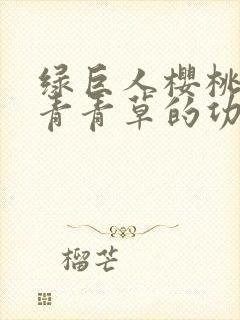 绿巨人櫻桃
青青草的功
榴芒